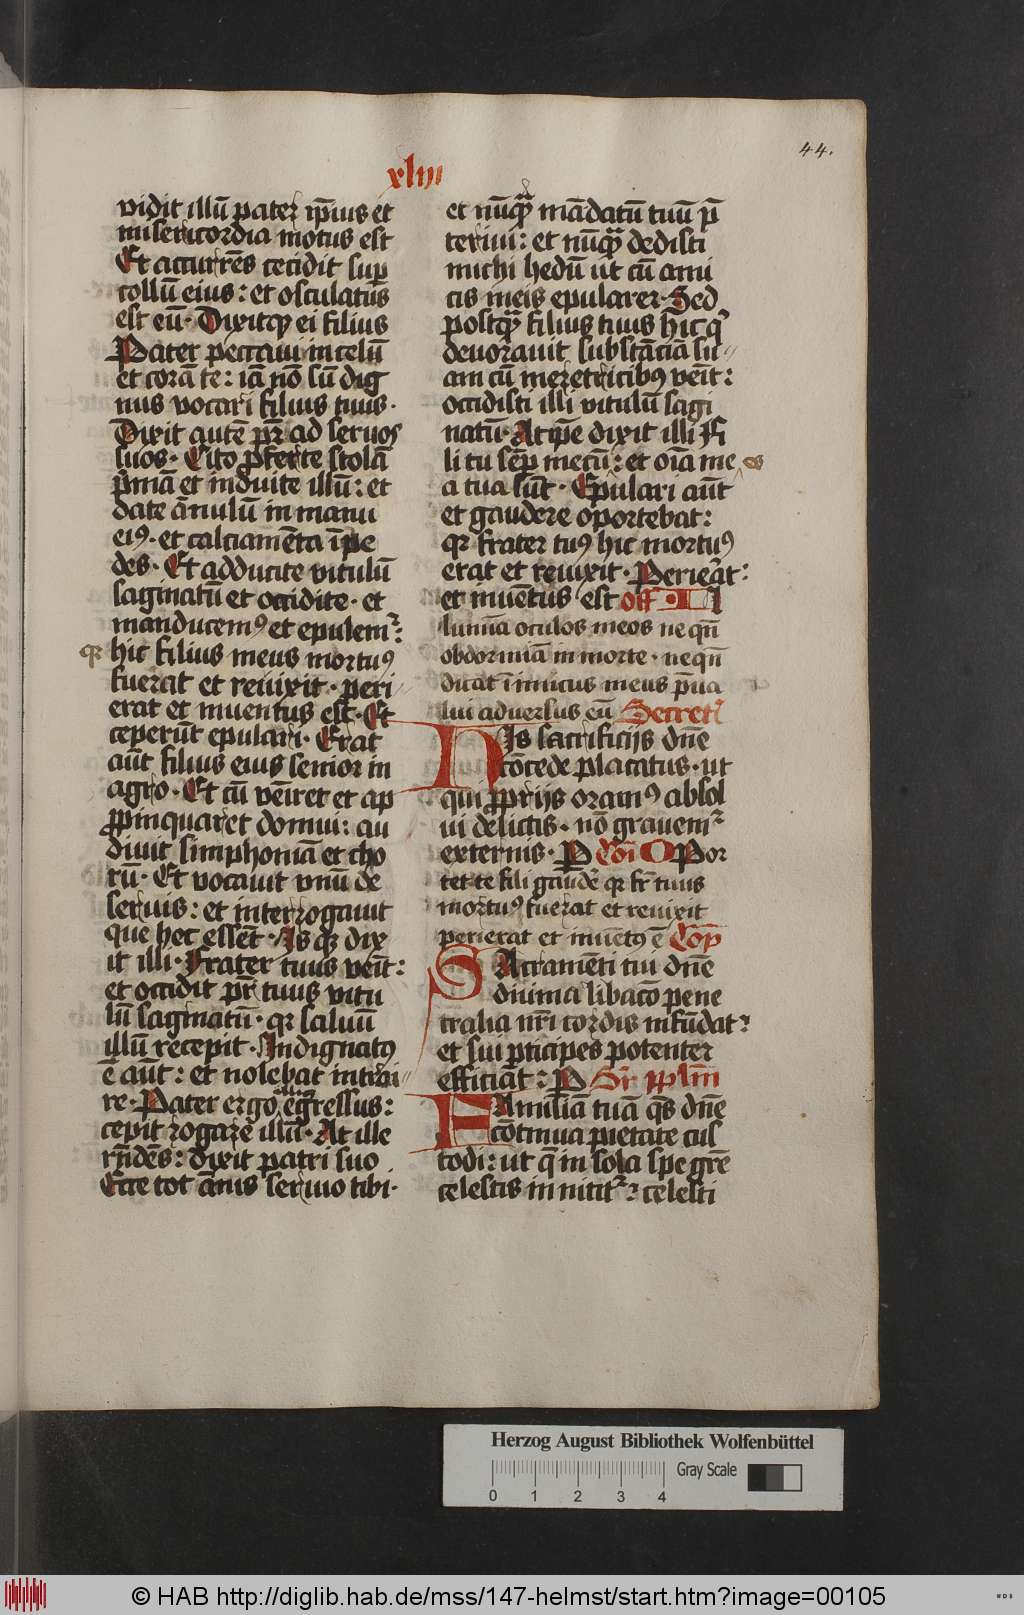 44.
xliii
vidit illū pater ip̄ius et
misericordia motus est
Et accurrēs cecidit sup̱
collū eius: et osculatus
est eū· Dixitqꝫ ei filius
Pater peccaui in celū
et corā te: iā nō sū dig
nus vocari filius tuus·
Dixit autē pr̄ ad seruos
suos· Cito ꝓferte stolā
p̄mā et induite illū: et
date ānulū in manu
eiꝰ· et calciamēta ī pe
des· Et adducite vitulū
saginatū et occidite· et
manducemꝰ et epulemr̄:
qꝛ hic filius meus mortuꝰ
fuerat et reuixit· peri
erat et inuentus est· Et
ceperūt epulari· Erat
aūt filius eius senior in
agro· Et cū veīret et ap
ꝓpinquaret domui: au
diuit simphoniā et cho
rū· Et vocauit vnū de
seruis: et interrogauit
que hec essēt· Is qꝫ dix
it illi· Frater tuus veīt:
et occidit pr̄ tuus vitu
lū saginatū· qꝛ saluū
illū recepit· Indignatꝰ
ē aūt: et nolebat intrai
re· Pater ergo egressus:
cepit rogare illū· At ille
rn̄dēs: dixit patri suo
Ecce tot ānis seruio tibi·
et nūqꝫ mādatū tuū p̄
teriui: et nūqꝫ dedisti
michi hedū ut cū ami
cis meis epularer· Sed
postqꝫ filius tuus hic q̄
deuorauit substāciā su
am cū meretricibꝰ veīt:
occidisti illi vitulū sagi
natū· At ip̄e dixit illi Fi
li tu sēp̱ mecū: es et oīa me
a tua sūt· Epulari aūt
et gaudere oportebat:
qꝛ frater tuꝰ hic mortuꝰ
erat et reuixit· Perierāt:
et inuentus est off· Il
lumīa oculos meos neqn̄
obdormiā in morte· neqn̄
dicat īmicus meus p̄ua
lui aduersus eū Secret̄
His sacrificijs dn̄e
cōcede placatus· ut
qui ꝓprijs oramꝰ absol
ui delictis· nō grauemr̄
externis· P Cōi OPor
tet te fili gaudē qꝛ fr̄ tuus
mortuꝰ fuerat et reuixit
perierat et inuētꝰ ē Cōp̄
SAcramēti tui dn̄e
diuina libacō pene
tralia nr̄i cordis infūdatr̄
et sui p̱ticipes potenter
efficiāt: P Sr̄ ppl̄m
FAmiliā tuā q̄s dn̄e
cōtinua pietate cus
todi: ut q̄ in sola spe gr̄e
celestis innititr̄ꝛ celesti
Herzog August Bibliothek Wolfenbüttel
Gray Scale
0 1 2 3 4
© HAB http://diglib.hab.de/mss/147-helmst/start.htm?image=00105